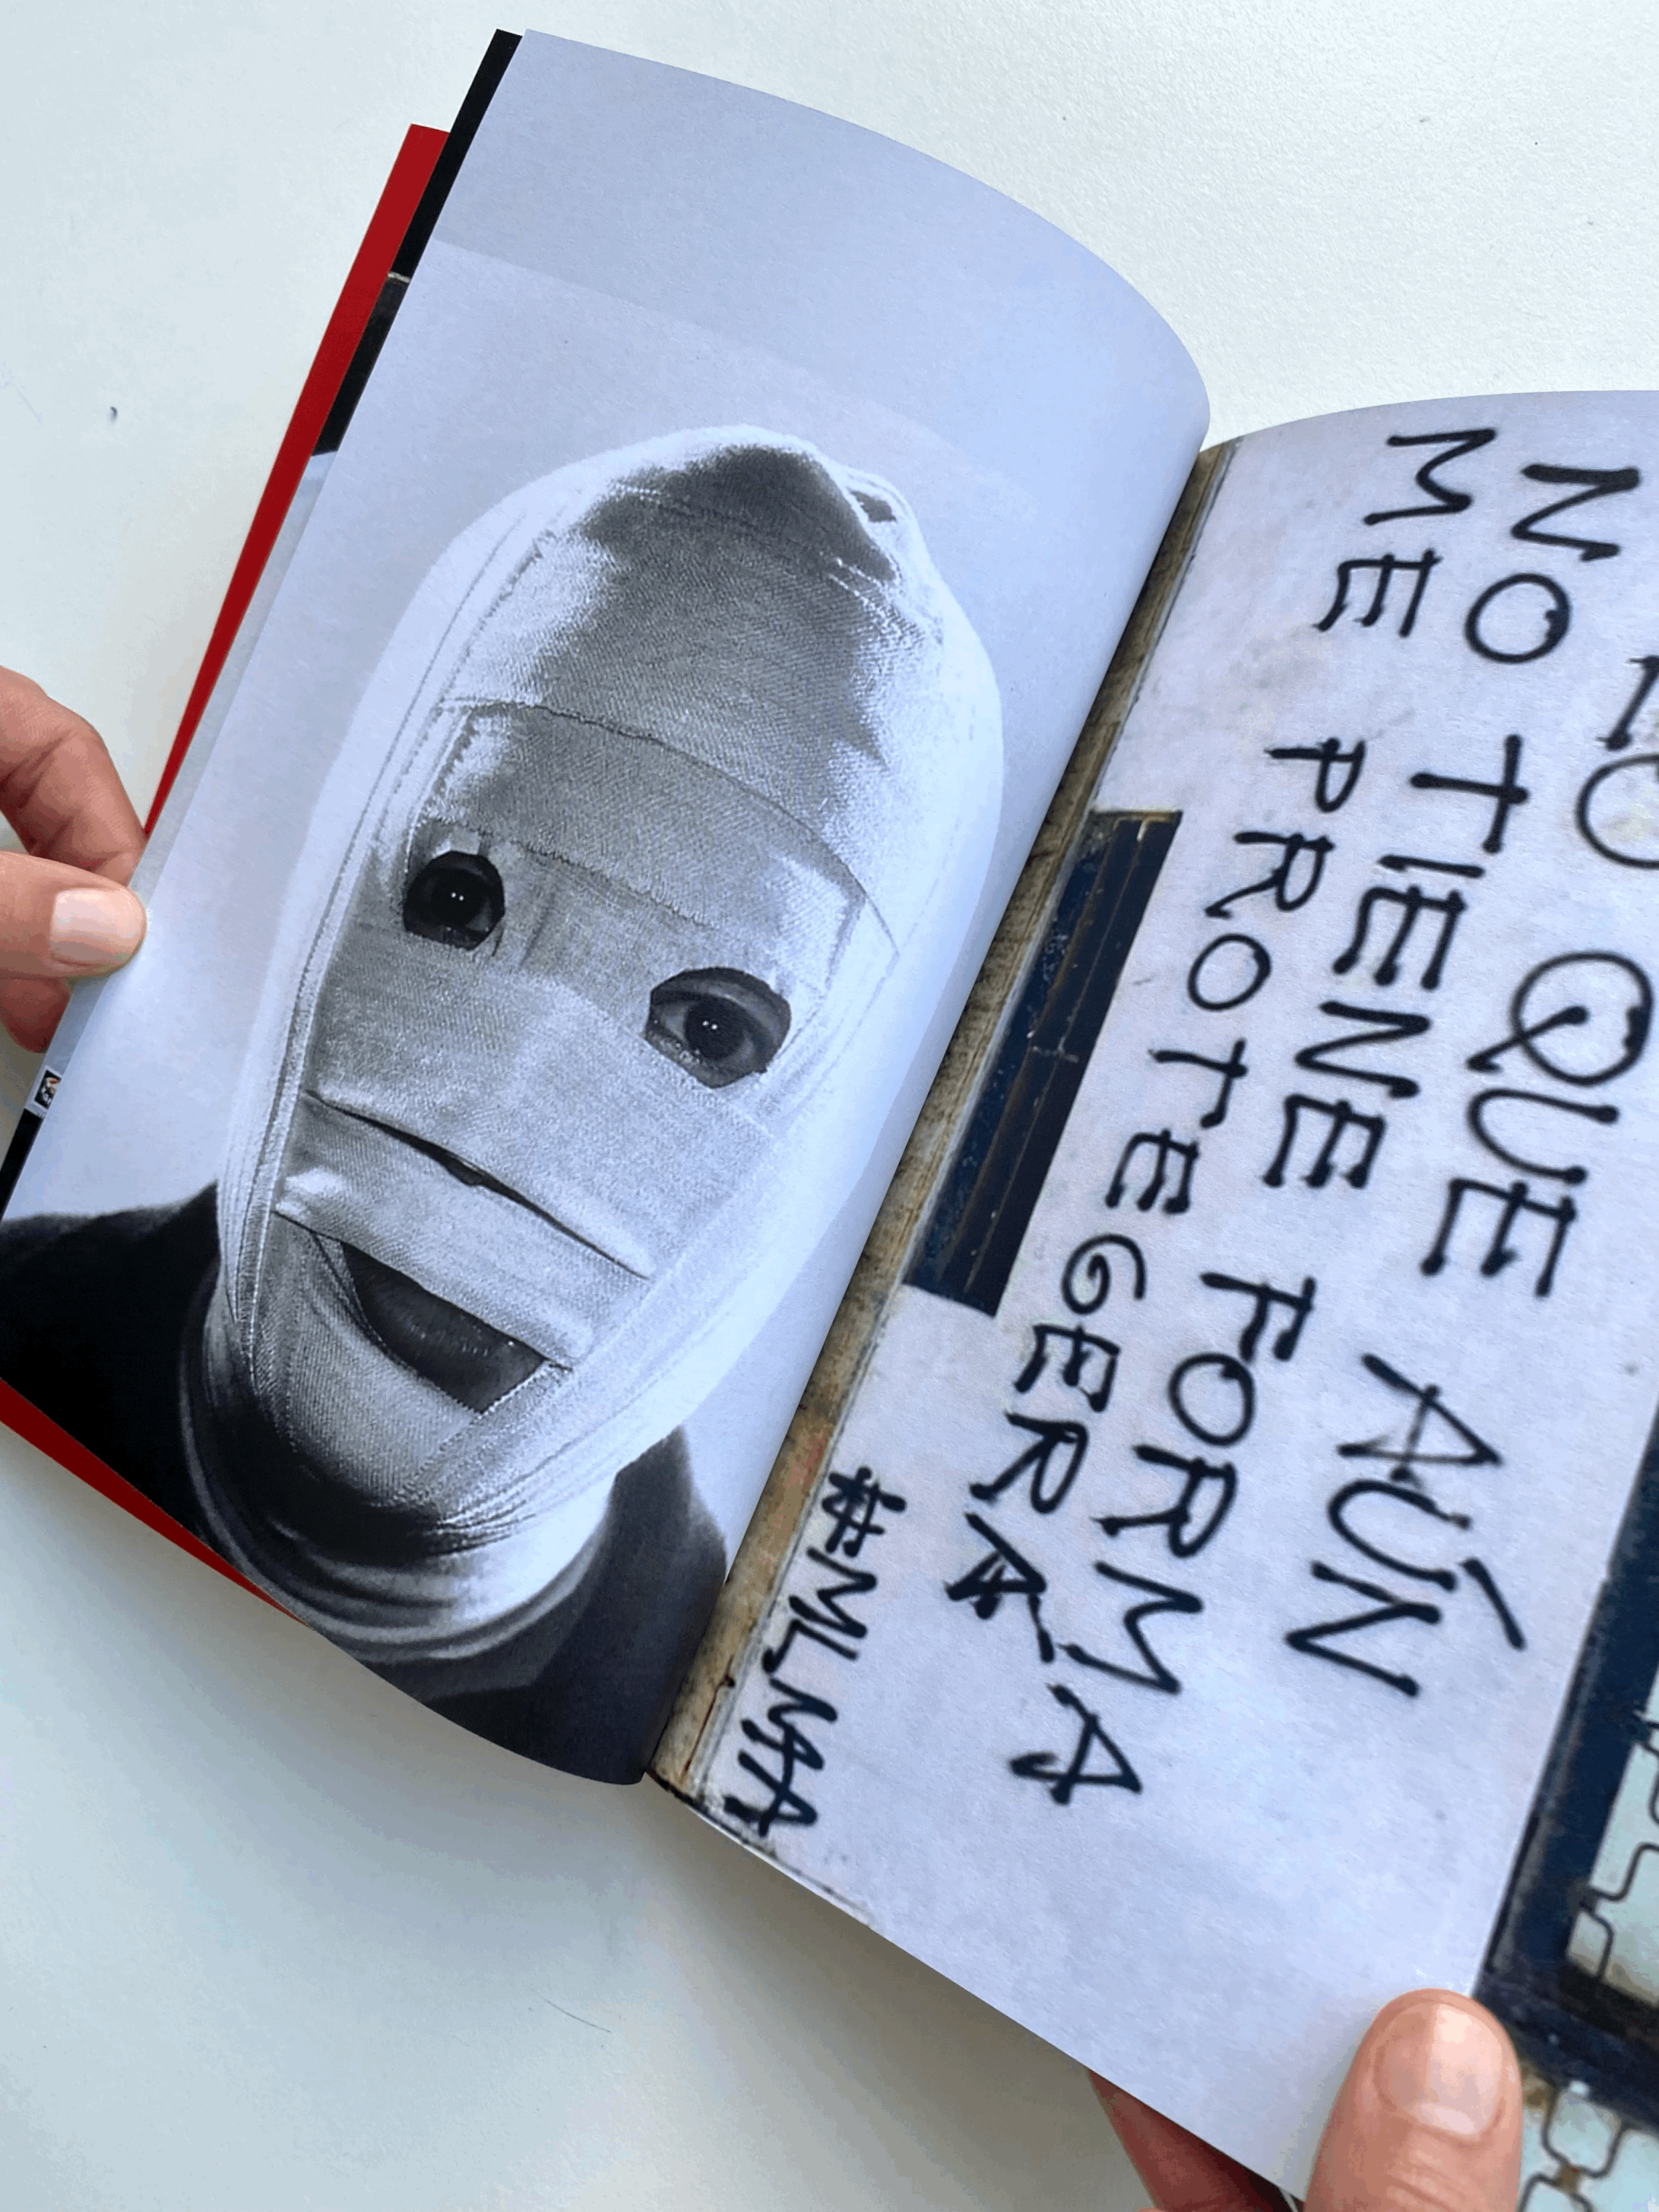 LO QUE AÚN
NO TIENE FORMA
ME PROTEGERÁ
#MLMA